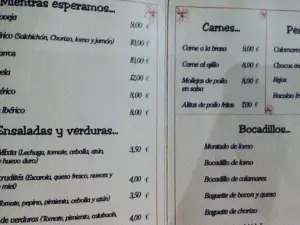 Mientras esperamos...
oveja 9,00 €
érico (Salchichón, Chorizo, lomo y jamón) 10,00 €
10,00 €
uela 12,00 €
érico 8,00 €
Ibérico 8,00 €
Ensaladas y verduras...
Mixta (Lechuga, tomate, cebolla, atún 3,50 €
y huevo duro)
crudités (Escarola, queso fresco, nueces y 4,00 €
miel)
(Tomate, pepino, pimiento, cebolla y atún) 3,50 €
de verduras (Tomate, pimiento, calabacín, 4,00 €
Carnes...
Carne a la brasa 9,00 €
Carne al ajillo 8,00 €
Mollejas de pollo 8,00 €
en salsa
Alitas de pollo fritas €
Pes
Calamares
Chocos
Rejos
Bacalao
Bocadillos...
Montado de lomo
Bocadillo de lomo
Bocadillo de calamares
Baguette de bacon y queso
Baguette de chorizo